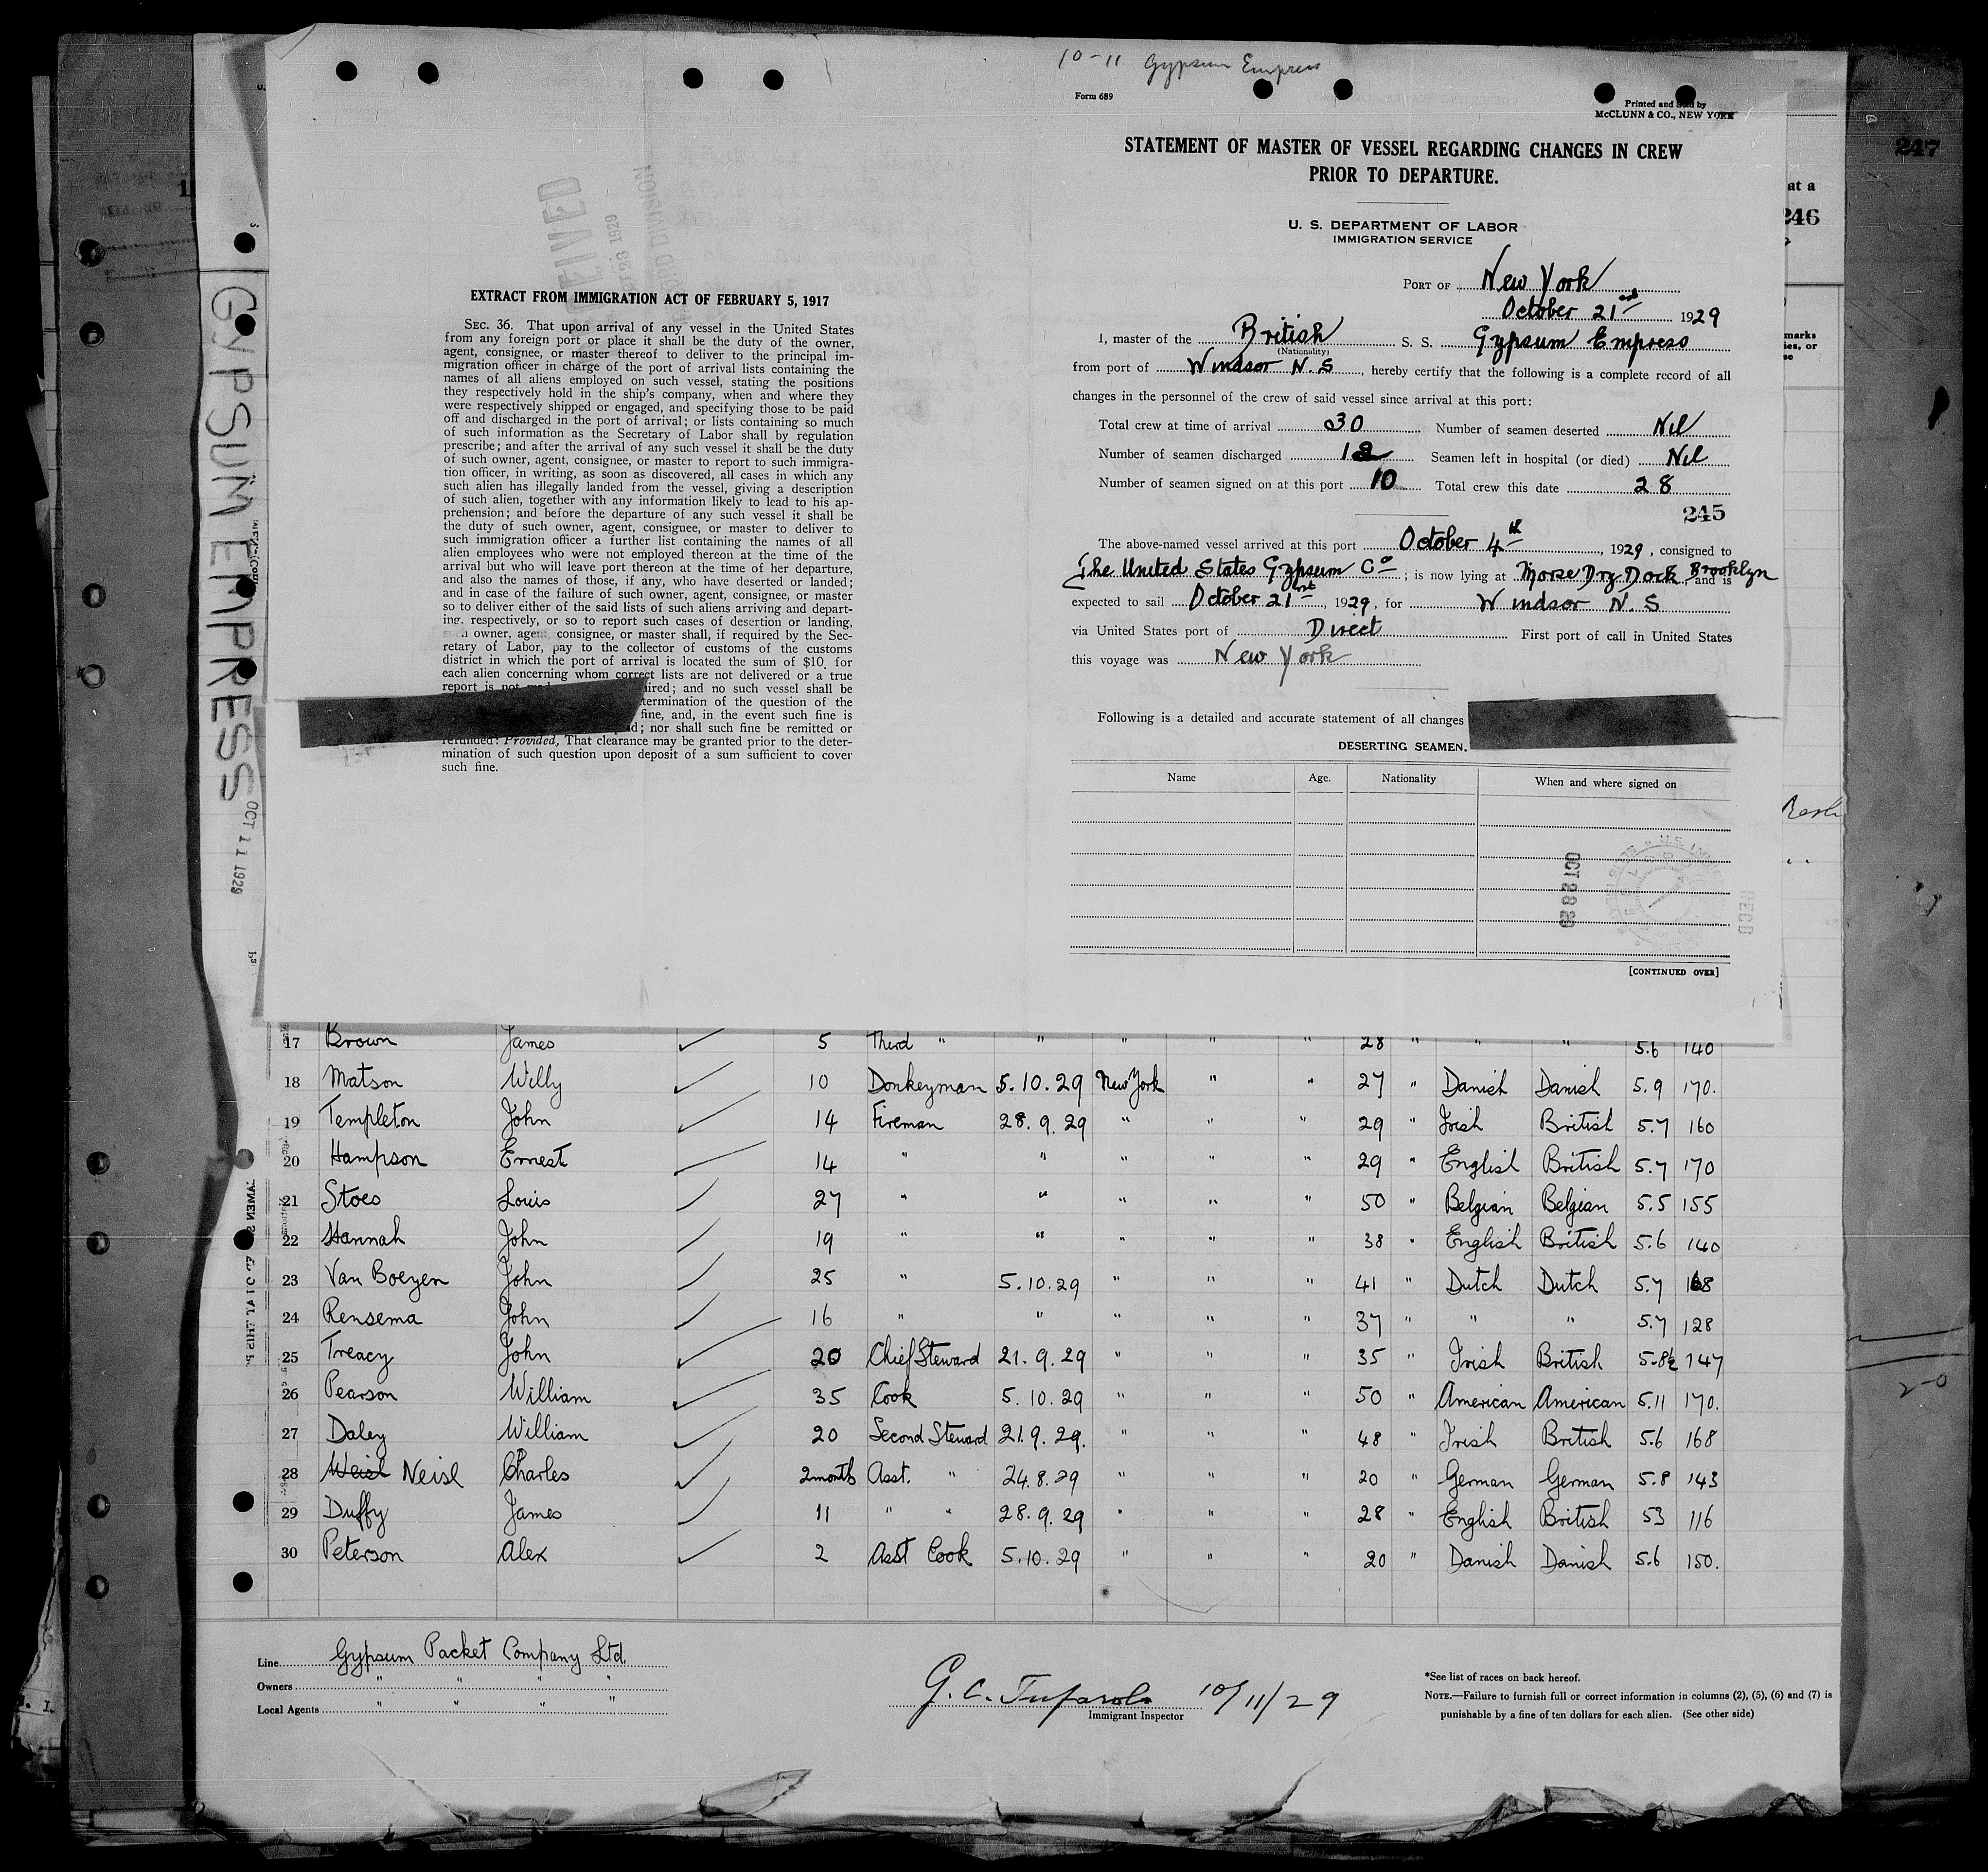 10-11 Gypsum Empress
Form 689
Printed and Sold by
McCLUNN & CO., NEW YORK
STATEMENT OF MASTER OF VESSEL REGARDING CHANGES IN CREW
PRIOR TO DEPARTURE.
U. S. DEPARTMENT OF LABOR
IMMIGRATION SERVICE
PORT OF New York
October 21st 1929
I, master of the British S. S. Gypsum Empress
(Nationality)
from port of Windsor N.S, hereby certify that the following is a complete record of all
changes in the personnel of the crew of said vessel since arrival at this port:
Total crew at time of arrival 30 Number of seamen deserted Nil
Number of seamen discharged 12 Seamen left in hospital (or died) Nil
Number of seamen signed on at this port 10 Total crew this date 28
245
The above-named vessel arrived at this port October 4th, 1929, consigned to
The United States Gypsum Co; is now lying at Morse Dry Dock Brooklyn, and is
expected to sail October 21st, 1929, for Windsor N.S
via United States port of Direct First port of call in United States
this voyage was New York
Following is a detailed and accurate statement of all changes
DESERTING SEAMEN.
Name Age. Nationality When and where signed on
OCT 28 29
REC'D
[CONTINUED OVER]
RECEIVED
1929
DIVISION
EXTRACT FROM IMMIGRATION ACT OF FEBRUARY 5, 1917
SEC. 36. That upon arrival of any vessel in the United States
from any foreign port or place it shall be the duty of the owner,
agent, consignee, or master thereof to deliver to the principal im-
migration officer in charge of the port of arrival lists containing the
names of all aliens employed on such vessel, stating the positions
they respectively hold in the ship's company, when and where they
were respectively shipped or engaged, and specifying those to be paid
off and discharged in the port of arrival; or lists containing so much
of such information as the Secretary of Labor shall by regulation
prescribe; and after the arrival of any such vessel it shall be the duty
of such owner, agent, consignee, or master to report to such immigra-
tion officer, in writing, as soon as discovered, all cases in which any
such alien has illegally landed from the vessel, giving a description
of such alien, together with any information likely to lead to his ap-
prehension; and before the departure of any such vessel it shall be
the duty of such owner, agent, consignee, or master to deliver to
such immigration officer a further list containing the names of all
alien employees who were not employed thereon at the time of the
arrival but who will leave port thereon at the time of her departure,
and also the names of those, if any, who have deserted or landed;
and in case of the failure of such owner, agent, consignee, or master
so to deliver either of the said lists of such aliens arriving and depart-
ing, respectively, or so to report such cases of desertion or landing,
such owner, agent, consignee, or master shall, if required by the Sec-
retary of Labor, pay to the collector of customs of the customs
district in which the port of arrival is located the sum of $10 for
each alien concerning whom correct lists are not delivered or a true
report is not ired; and no such vessel shall be
termination of the question of the
fine, and, in the event such fine is
id; nor shall such fine be remitted or
refunded: Provided, That clearance may be granted prior to the deter-
mination of such question upon deposit of a sum sufficient to cover
such fine.
GYPSUM EMPRESS
OCT 11 1929
247
at a
246
marks
ies, or
se
17 Brown James 5 Third " " " " " 28 " " " 5.6 140
18 Matson Willy 10 Donkeyman 5.10.29 New York " " 27 " Danish Danish 5.9 170.
19 Templeton John 14 Fireman 28.9.29 " " " 29 " Irish British 5.7 160
20 Hampson Ernest 14 " " " " " 29 " English British 5.7 170
21 Stoes Louis 27 " " " " " 50 " Belgian Belgian 5.5 155
22 Hannah John 19 " " " " " 38 " English British 5.6 140
23 Van Boeyen John 25 " 5.10.29 " " " 41 " Dutch Dutch 5.7 168
24 Rensema John 16 " " " " " 37 " " " 5.7 128
25 Treacy John 20 Chief Steward 21.9.29 " " " 35 " Irish British 5-8½ 147
26 Pearson William 35 Cook 5.10.29 " " " 50 " American American 5.11 170.
27 Daley William 20 Second Steward 21.9.29. " " " 48 " Irish British 5.6 168
28 Weisl Neisl Charles 2 months Asst. " 24.8.29 " " " 20 " German German 5.8 143
29 Duffy James 11 " " 28.9.29 " " " 28 " English British 53 116
30 Peterson Alex 2 Asst Cook 5.10.29 " " " 20 " Danish Danish 5.6 150.
Line Gypsum Packet Company Ltd.
Owners " " " "
Local Agents " " " "
10/11/29
Immigrant Inspector
*See list of races on back hereof.
NOTE.—Failure to furnish full or correct information in columns (2), (5), (6) and (7) is
punishable by a fine of ten dollars for each alien. (See other side)